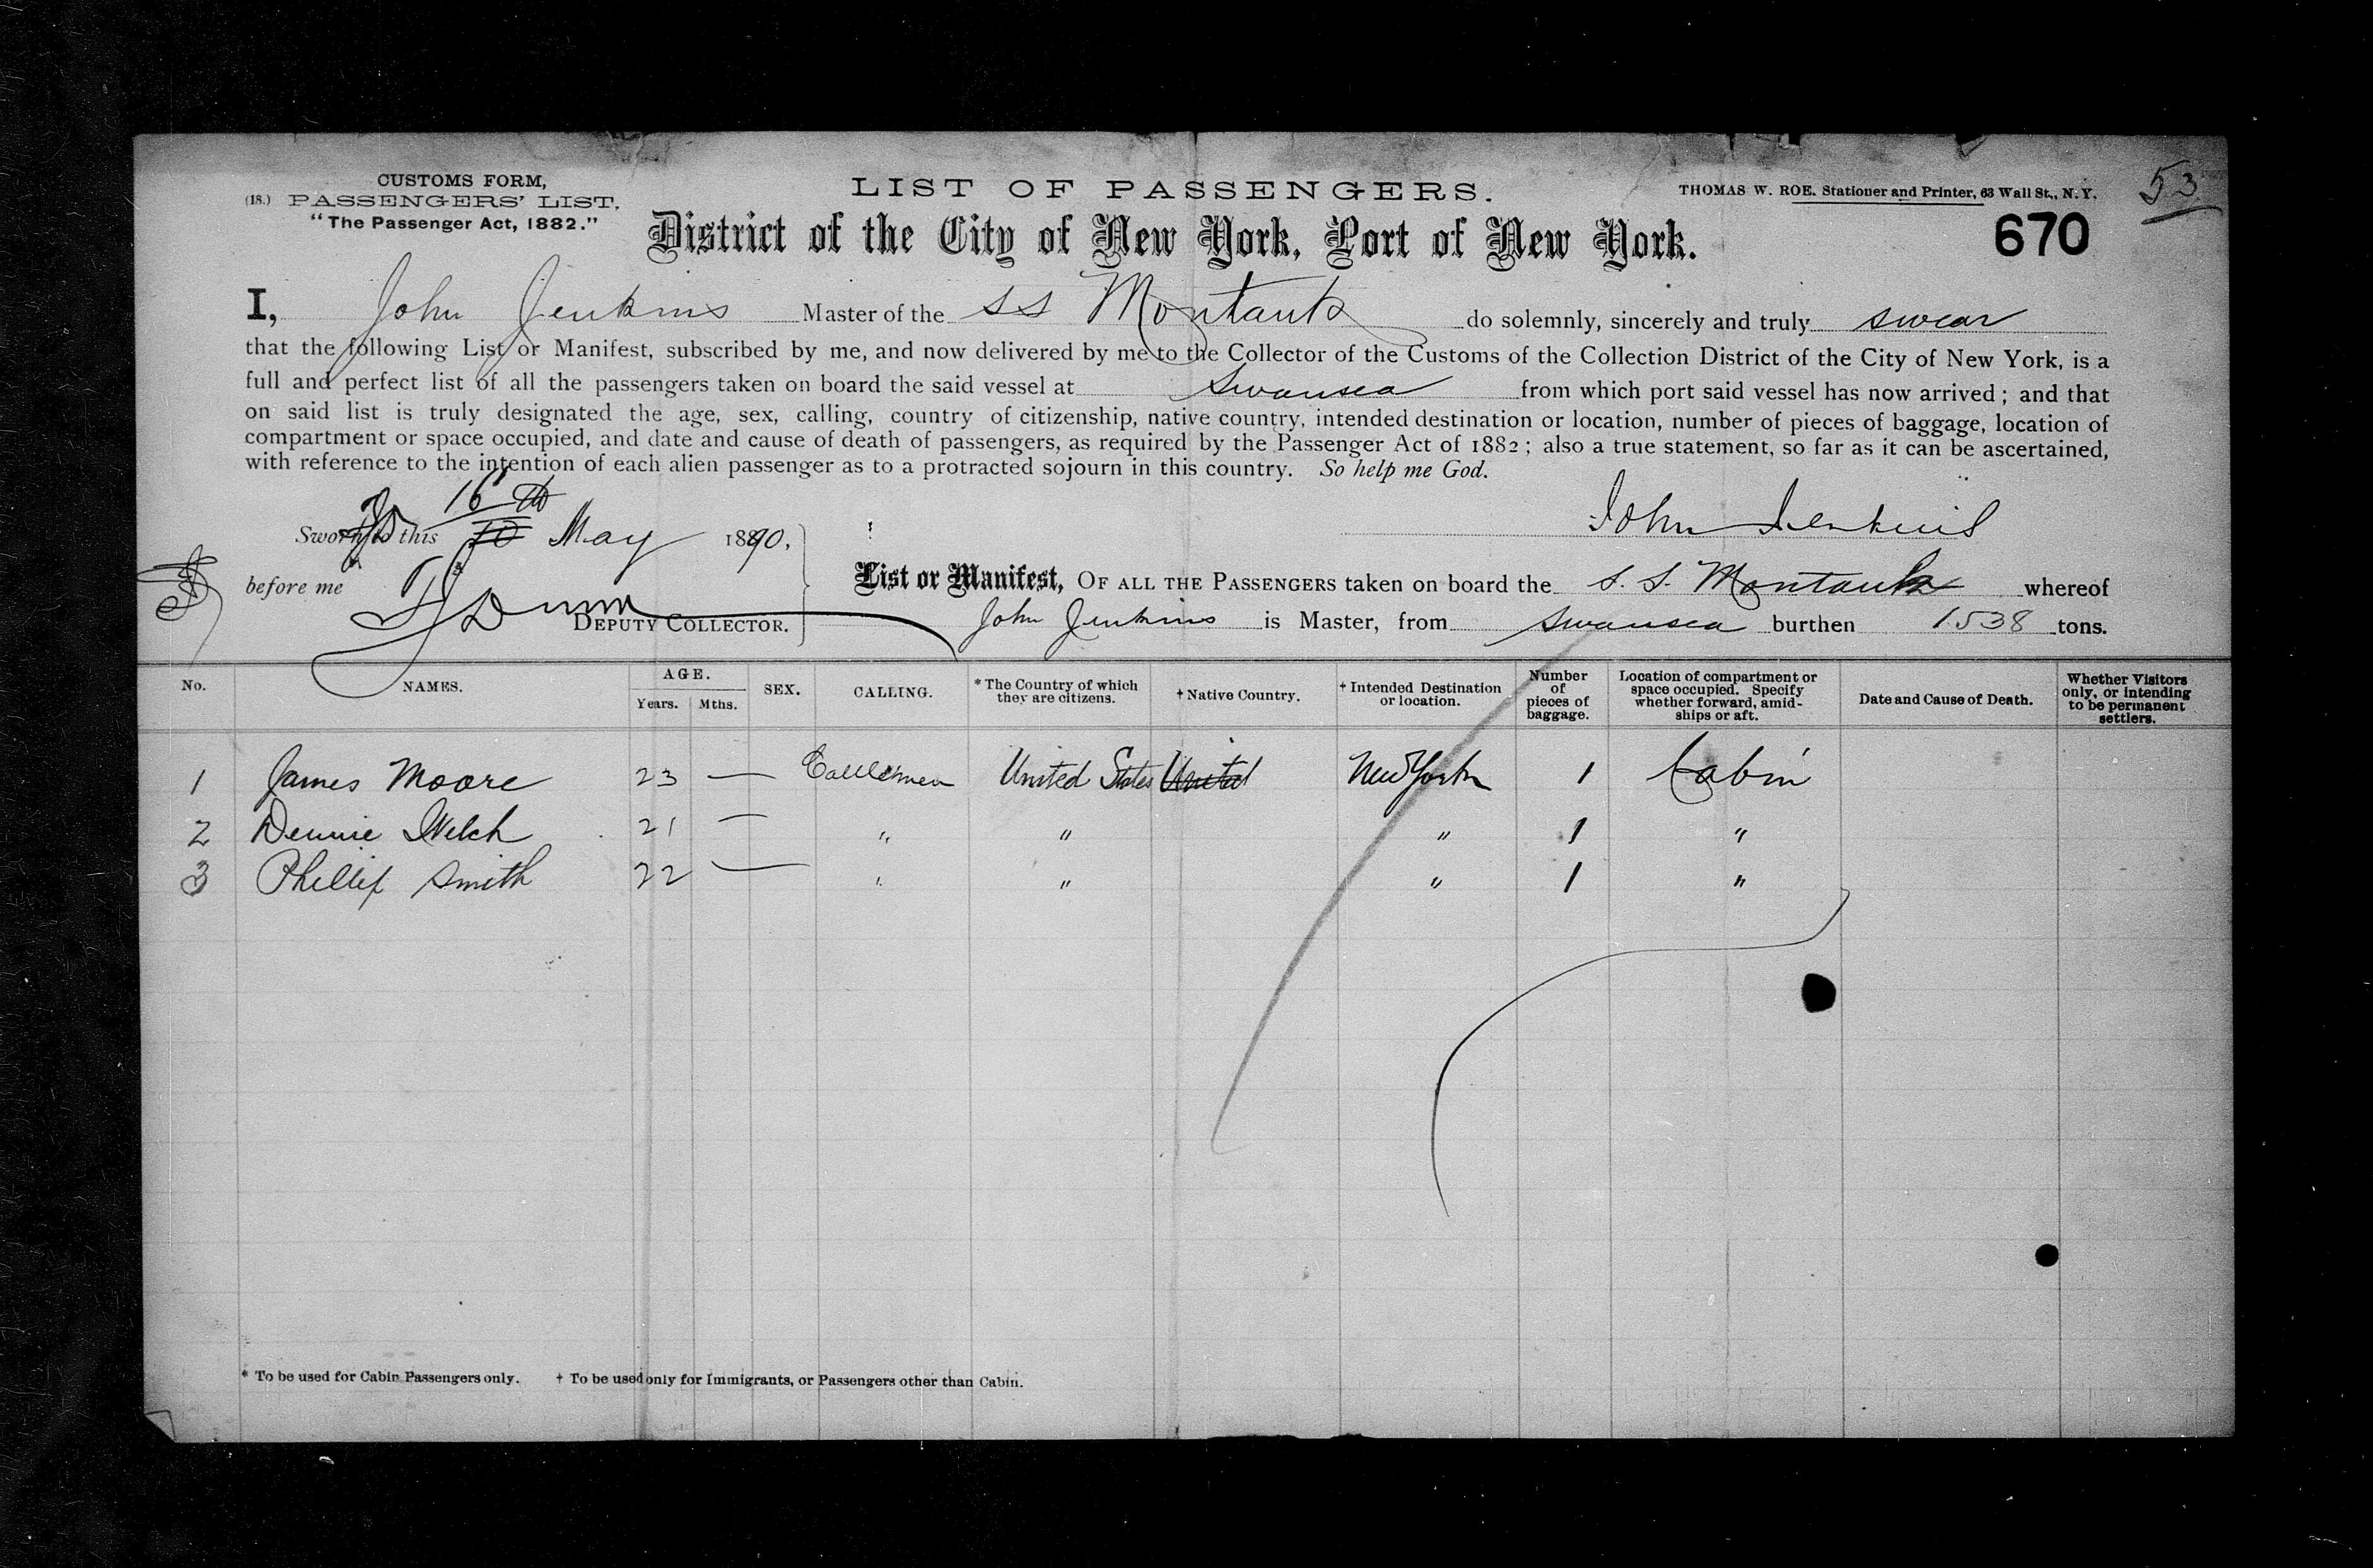 CUSTOMS FORM,
(18.) PASSENGERS' LIST.
"The Passenger Act, 1882."
LIST OF PASSENGERS.
THOMAS W. ROE. Stationer and Printer, 63 Wall St., N.Y.
53
District of the City of New York, Port of New York.
670
I, John Jenkins Master of the SS Montauk do solemnly, sincerely and truly swear
that the following List or Manifest, subscribed by me, and now delivered by me to the Collector of the Customs of the Collection District of the City of New York, is a
full and perfect list of all the passengers taken on board the said vessel at Swansea from which port said vessel has now arrived; and that
on said list is truly designated the age, sex, calling, country of citizenship, native country, intended destination or location, number of pieces of baggage, location of
compartment or space occupied, and date and cause of death of passengers, as required by the Passenger Act of 1882; also a true statement, so far as it can be ascertained,
with reference to the intention of each alien passenger as to a protracted sojourn in this country. So help me God.
16th
Sworn to this May 1890,
John Jenkins
before me
DEPUTY COLLECTOR.
List or Manifest, OF ALL THE PASSENGERS taken on board the S. S. Montauk whereof
John Jenkins is Master, from Swansea burthen 1538 tons.
No. NAMES. AGE. Years. Mths. SEX. CALLING. * The Country of which they are citizens. † Native Country. † Intended Destination or location. Number of pieces of baggage. Location of compartment or space occupied. Specify whether forward, amidships or aft. Date and Cause of Death. Whether Visitors only, or intending to be permanent settlers.
1 James Moore 23 — Cattlemen United States United New York 1 Cabin
2 Dennie Welch 21 — " " " 1 "
3 Phillip Smith 22 — " " " 1 "
* To be used for Cabin Passengers only. † To be used only for Immigrants, or Passengers other than Cabin.